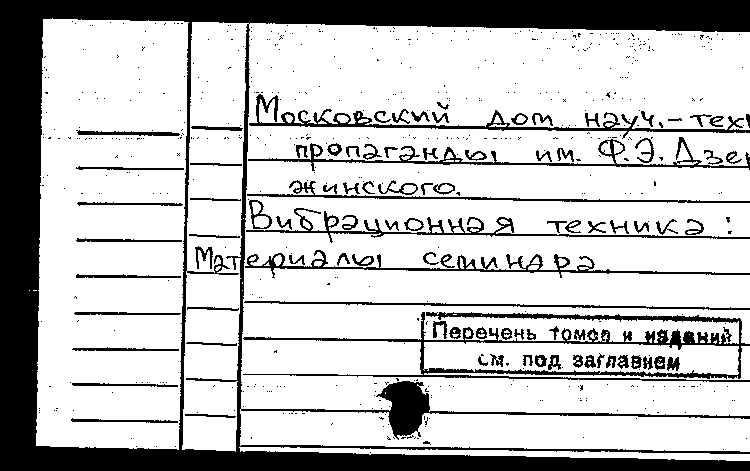 Московский дом науч.-тех
пропаганды им. Ф.Э. Дзер
жинского.
Вибрационная техника :
Материалы семинара.
Перечень томов и изданий
см. под заглавием